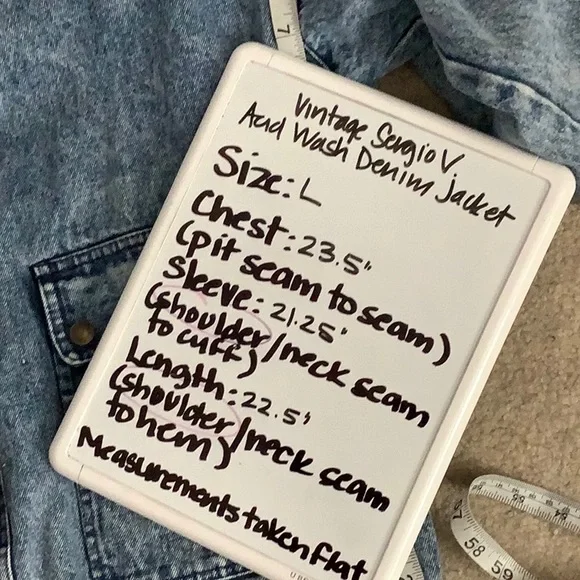 Vintage Sergio V.
Acid Wash Denim Jacket
Size: L
Chest: 23.5"
(pit seam to seam)
Sleeve: 21.25"
(shoulder/neck seam
to cuff)
Length: 22.5"
(shoulder/neck seam
to hem)
Measurements taken flat
7
58
59